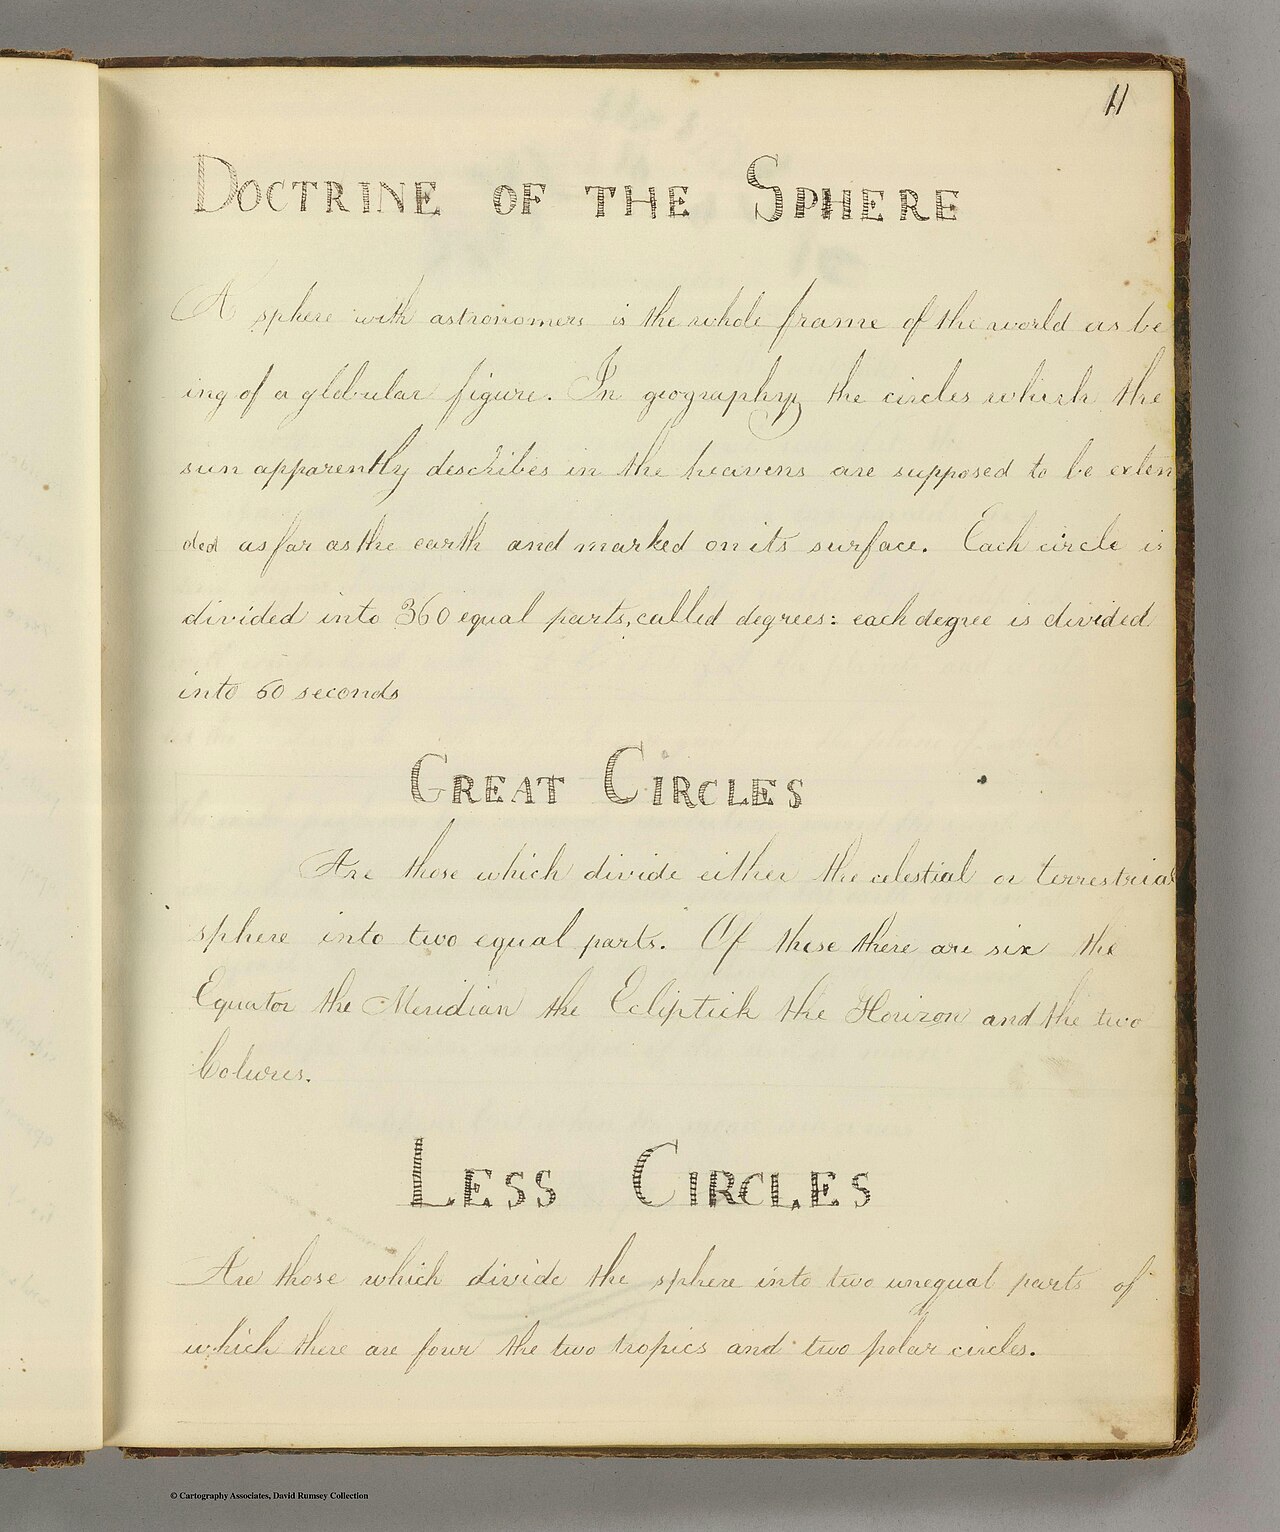 11
DOCTRINE OF THE SPHERE
A sphere with astronomers is the whole frame of the world as be
ing of a globular figure. In geography, the circles which the
sun apparently describes in the heavens are supposed to be exten
ded as far as the earth and marked on its surface. Each circle is
divided into 360 equal parts, called degrees: each degree is divided
into 60 seconds
GREAT CIRCLES
Are those which divide either the celestial or terrestrial
sphere into two equal parts. Of these there are six the
Equator the Meridian the Ecliptick the Horizon and the two
Colures.
LESS CIRCLES
Are those which divide the sphere into two unequal parts of
which there are four the two tropics and two polar circles.
© Cartography Associates, David Rumsey Collection